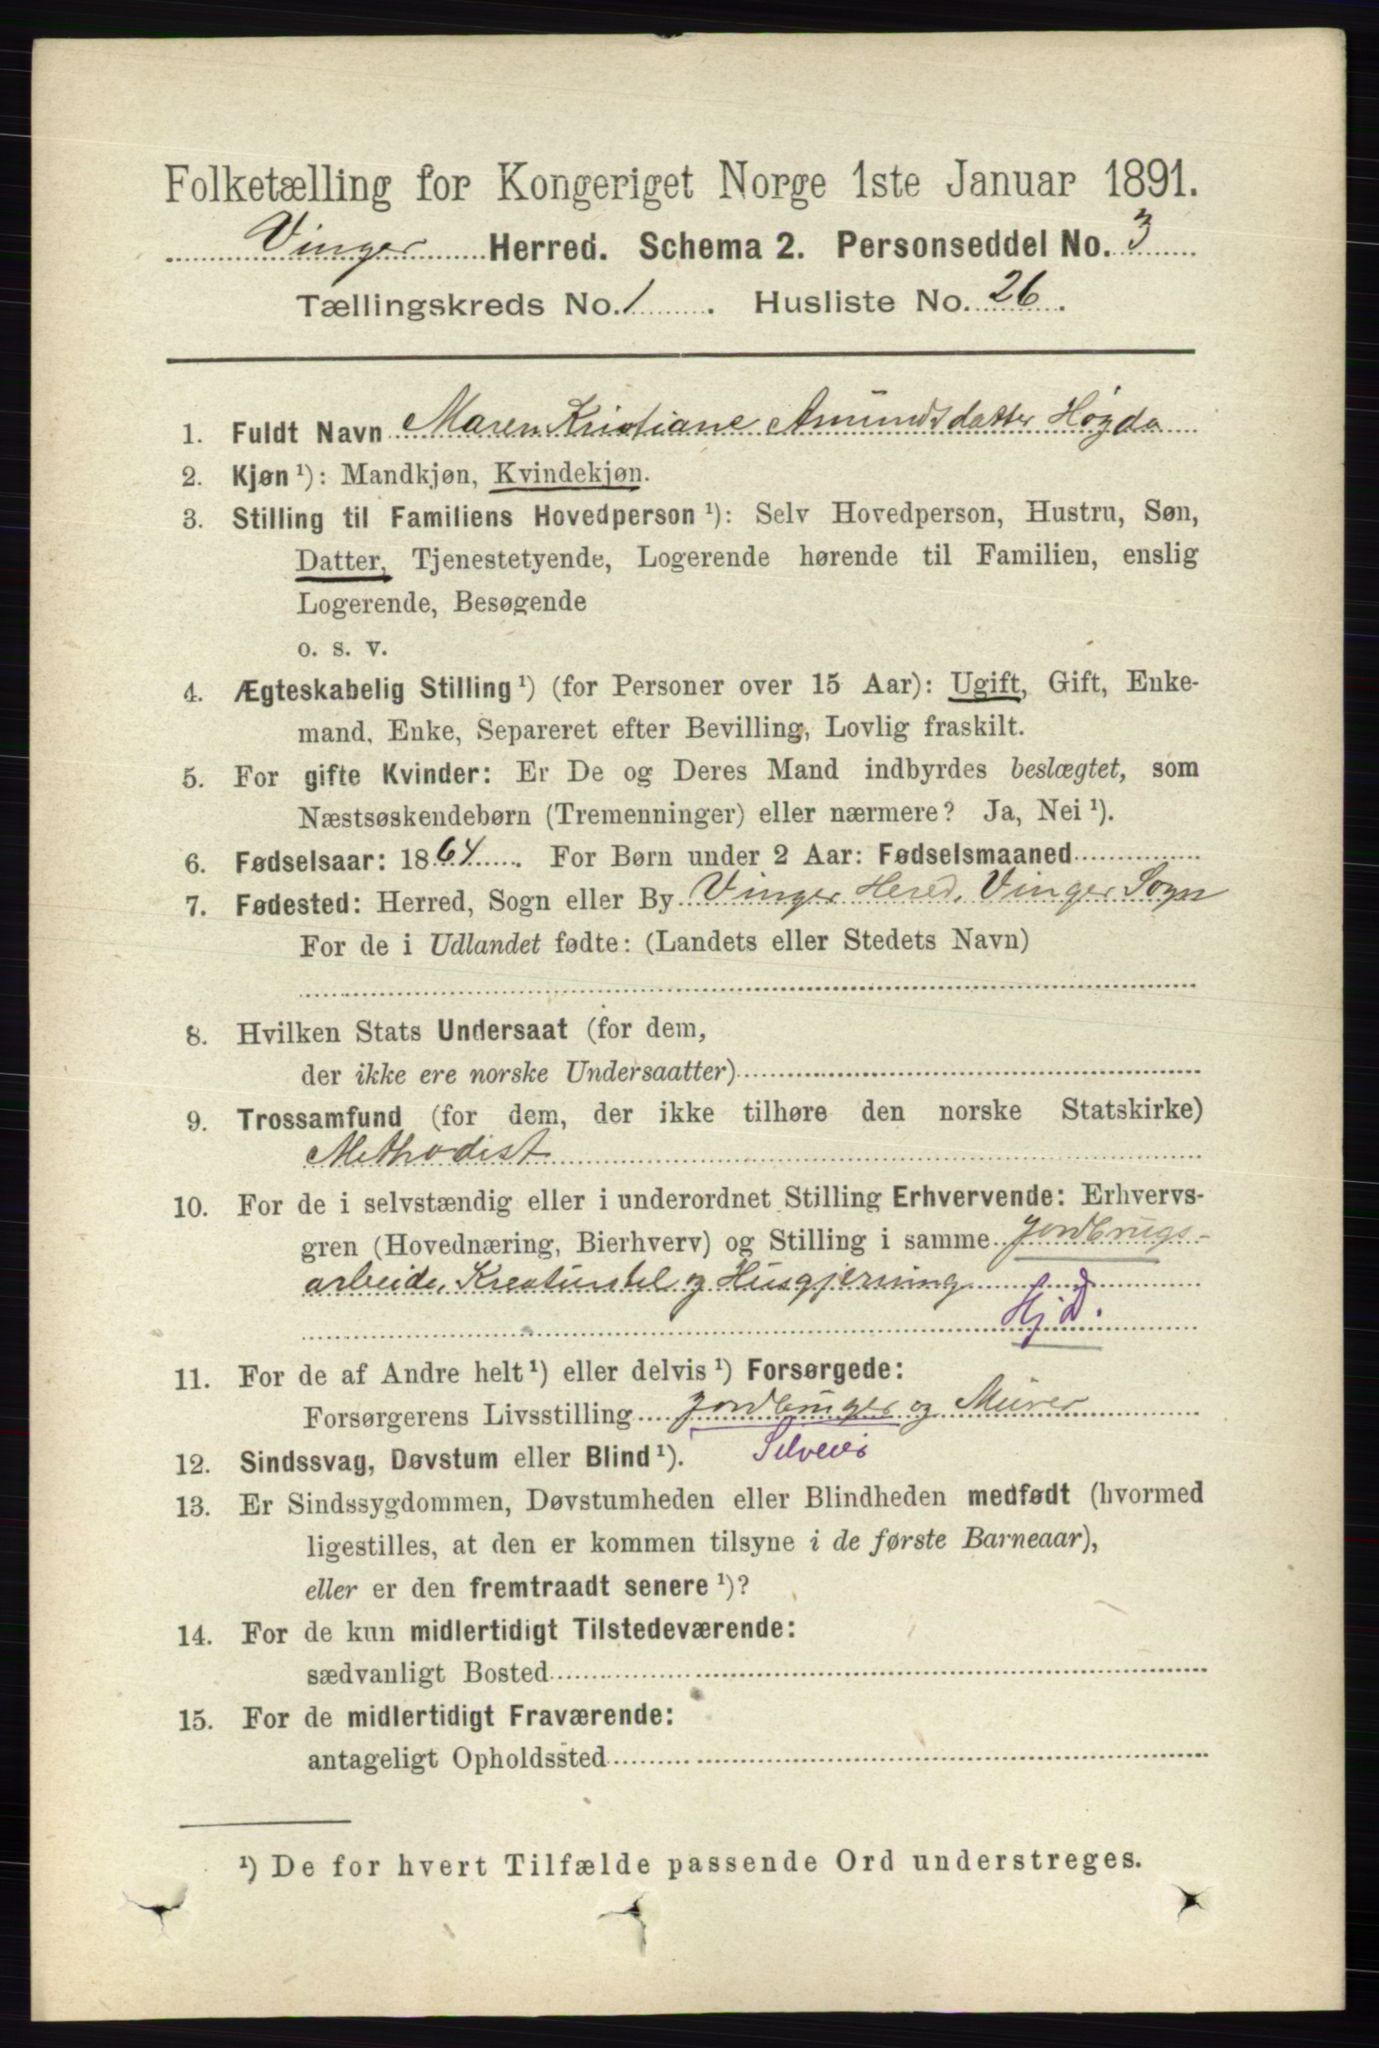 Folketælling for Kongeriget Norge 1ste Januar 1891.
Vinger Herred. Schema 2. Personseddel No. 3
Tællingskreds No. 1. Husliste No. 26.
1. Fuldt Navn Maren Kristiane Amundsdatter Høgda
2. Kjøn ¹): Mandkjøn, Kvindekjøn.
3. Stilling til Familiens Hovedperson ¹): Selv Hovedperson, Hustru, Søn,
Datter, Tjenestetyende, Logerende hørende til Familien, enslig
Logerende, Besøgende
o. s. v.
4. Ægteskabelig Stilling ¹) (for Personer over 15 Aar): Ugift, Gift, Enke-
mand, Enke, Separeret efter Bevilling, Lovlig fraskilt.
5. For gifte Kvinder: Er De og Deres Mand indbyrdes beslægtet, som
Næstsøskendebørn (Tremenninger) eller nærmere? Ja, Nei ¹).
6. Fødselsaar: 1864. For Børn under 2 Aar: Fødselsmaaned
7. Fødested: Herred, Sogn eller By Vinger Hered, Vinger Sogn
For de i Udlandet fødte: (Landets eller Stedets Navn)
8. Hvilken Stats Undersaat (for dem,
der ikke ere norske Undersaatter)
9. Trossamfund (for dem, der ikke tilhøre den norske Statskirke)
Methodist
10. For de i selvstændig eller i underordnet Stilling Erhvervende: Erhvervs-
gren (Hovednæring, Bierhverv) og Stilling i samme Jordbrugs-
arbeide, Kreaturstel og Husgjerning
Hj D.
11. For de af Andre helt ¹) eller delvis ¹) Forsørgede:
Forsørgerens Livsstilling Jordbruger og Murer
12. Sindssvag, Døvstum eller Blind ¹). Selveier
13. Er Sindssygdommen, Døvstumheden eller Blindheden medfødt (hvormed
ligestilles, at den er kommen tilsyne i de første Barneaar),
eller er den fremtraadt senere ¹)?
14. For de kun midlertidigt Tilstedeværende:
sædvanligt Bosted
15. For de midlertidigt Fraværende:
antageligt Opholdssted
¹) De for hvert Tilfælde passende Ord understreges.